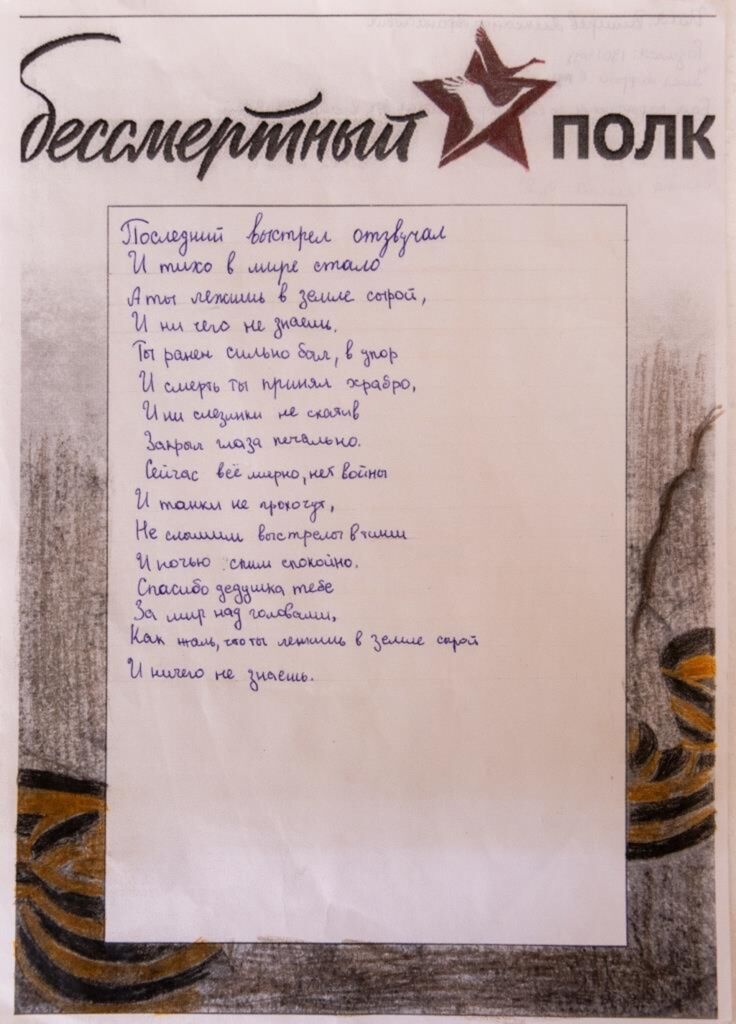 бессмертный ПОЛК
Последний выстрел отзвучал
И тихо в мире стало
А ты лежишь в земле сырой,
И ни чего не знаешь.
Ты ранен сильно был, в упор
И смерть ты принял храбро,
И ни слезинки не скатив
Закрыл глаза печально.
Сейчас всё мирно, нет войны
И танки не грохочут,
Не слышим выстрелы в тиши
И ночью спим спокойно.
Спасибо дедушка тебе
За мир над головами,
Как жаль, что ты лежишь в земле сырой
И ничего не знаешь.